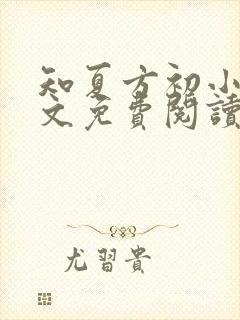 知夏方初小
文免費閱讀
尤習貴